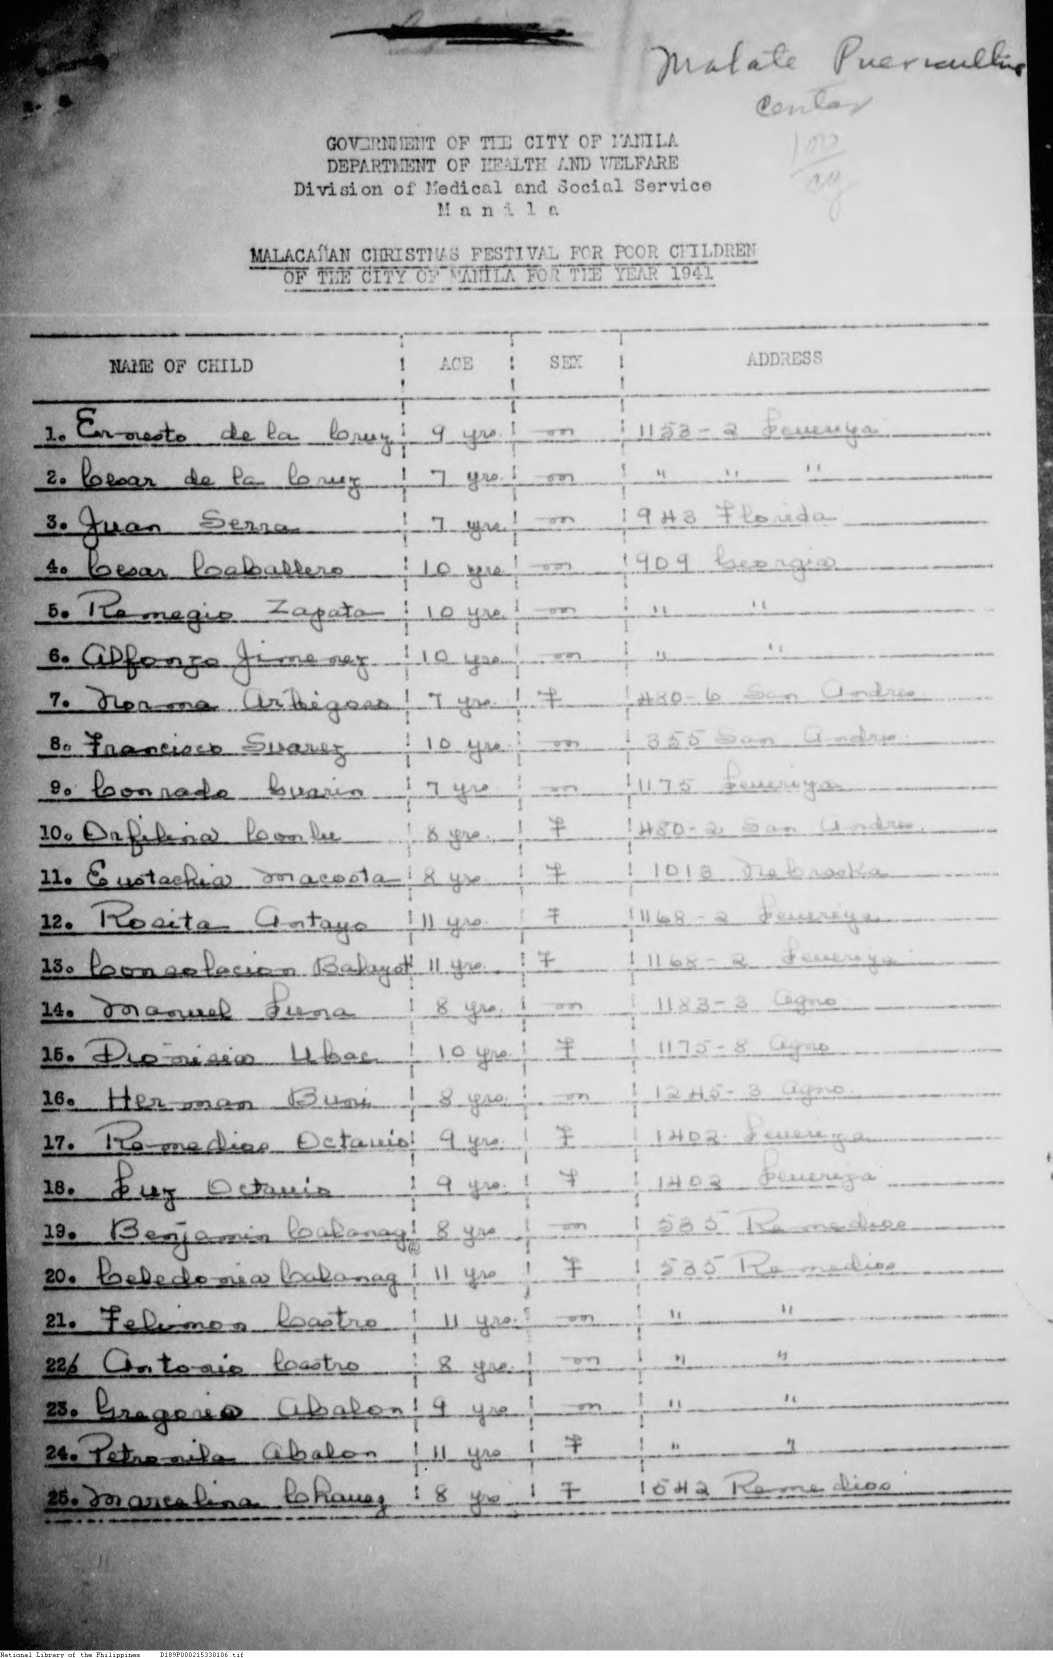 Malate Puericultur
Center
100
GOVERNMENT OF THE CITY OF MANILA
DEPARTMENT OF HEALTH AND WELFARE
Division of Medical and Social Service
M a n i l a
MALACAÑAN CHRISTMAS FESTIVAL FOR POOR CHILDREN
OF THE CITY OF MANILA FOR THE YEAR 1941
NAME OF CHILD AGE SEX ADDRESS
1. Ernesto de la Cruz 9 yrs. m 1153-2 Leveriza
2. Cesar de la Cruz 7 yrs. m " " "
3. Juan Serra 7 yrs. m 943 Florida
4. Cesar Caballero 10 yrs m 909 Georgia
5. Remegio Zapata 10 yrs. m " "
6. Alfonzo Jimenez 10 yrs. m " "
7. Norma 7 yrs. F 480-6 San Andres
8. Francisco Suarez 10 yrs. m 355 San Andres
9. Conrado Guarin 7 yrs m 1175 Leveriza
10. Orfilina 8 yrs. F 480-2 San Andres
11. Eustachia Macosta 8 yrs. F 1013 Nebraska
12. Rosita Antayo 11 yrs. F 1168-2 Leveriza
13. Consolacion 11 yrs. F 1168-2 Leveriza
14. Manuel Luna 8 yrs. m 1183-3 Agno
15. Dionisia Ubac 10 yrs. F 1175-8 Agno
16. Herman 8 yrs. m 1245-3 Agno
17. Remedios Octavio 9 yrs. F 1402 Leveriza
18. Luz Octavio 9 yrs. F 1402 Leveriza
19. Benjamin Calanag 8 yrs m 535 Remedios
20. Celedonia Calanag 11 yrs F 535 Remedios
21. Felimon Castro 11 yrs. m " "
22/ Antonio Castro 8 yrs. m " "
23. Gregorio Abalon 9 yrs m " "
24. Petronila Abalon 11 yrs F " "
25. Marcelina Chavez 8 yrs F 542 Remedios
National Library of the Philippines D189P000215330106.tif